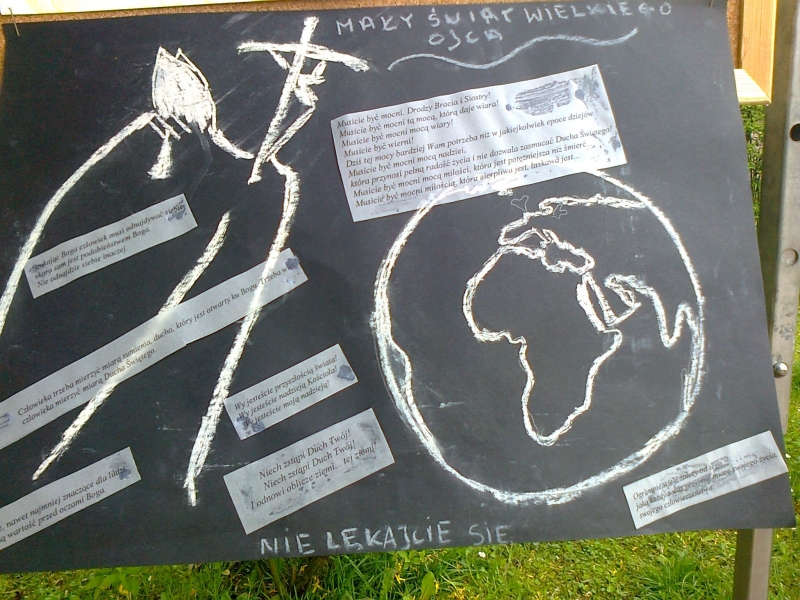 MAŁY ŚWIAT WIELKIEGO
OJCA
Musicie być mocni. Drodzy Bracia i Siostry!
Musicie być mocni tą mocą, którą daje wiara!
Musicie być mocni mocą wiary!
Musicie być wierni!
Dziś tej mocy bardziej Wam potrzeba niż w jakiejkolwiek epoce dziejów.
Musicie być mocni mocą nadziei,
która przynosi pełną radość życia i nie dozwala zasmucać Ducha Świętego!
Musicie być mocni mocą miłości, która jest potężniejsza niż śmierć...
Musicie być mocni miłością, która cierpliwa jest, łaskawa jest...
Szukając Boga człowiek musi odnajdywać siebie
skoro sam jest podobieństwem Boga.
Nie odnajdzie siebie inaczej.
Człowieka trzeba mierzyć miarą sumienia, ducha, który jest otwarty ku Bogu. Trzeba w
człowieka mierzyć miarą Ducha Świętego.
Wy jesteście przyszłością świata!
Wy jesteście nadzieją Kościoła!
Wy jesteście moją nadzieją!
Niech zstąpi Duch Twój!
Niech zstąpi Duch Twój!
I odnowi oblicze ziemi... tej ziemi!
nawet najmniej znaczące dla ludzi
wartość przed oczami Boga.
swojego życia,
swojego człowieczeństwa
NIE LĘKAJCIE SIĘ